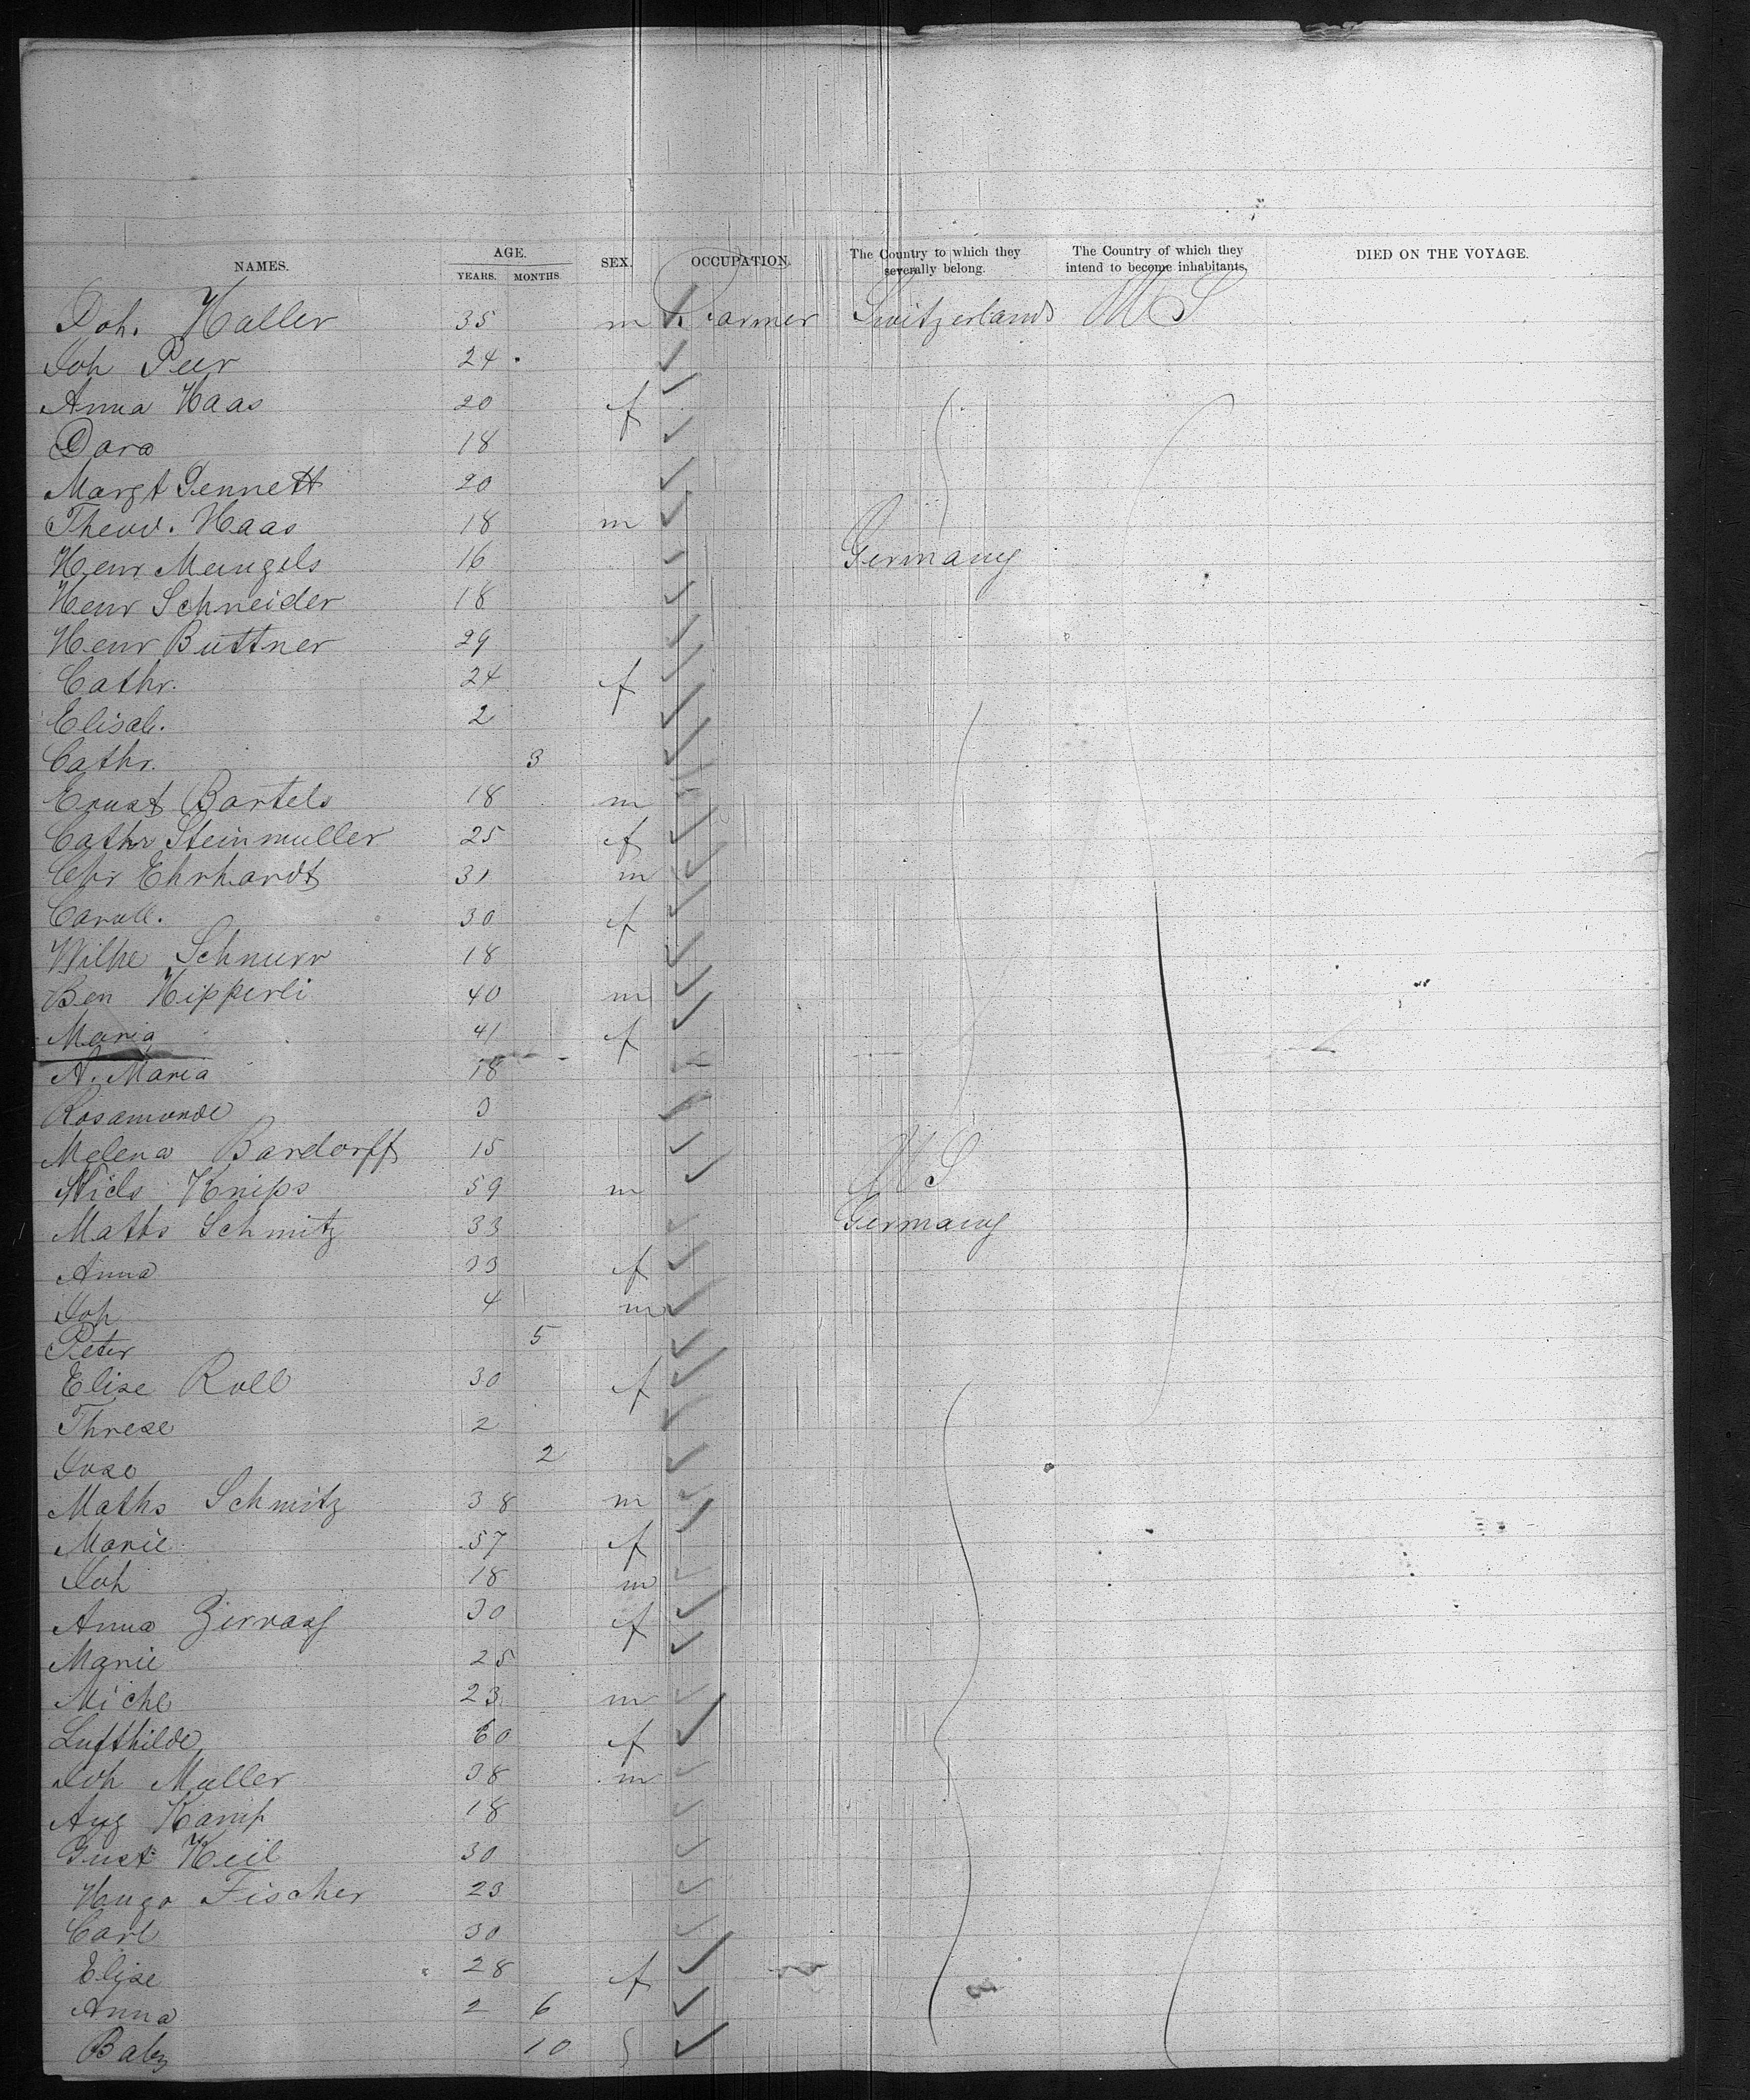 NAMES. AGE. YEARS. MONTHS. SEX. OCCUPATION. The Country to which they severally belong. The Country of which they intend to become inhabitants. DIED ON THE VOYAGE.
Joh. Haller 35 m Farmer Switzerland US
Joh Peer 24
Anna Haas 20 f
Dora 18
Margt Jennett 20
Theod. Haas 18 m
Henr Mengels 16 Germany
Henr Schneider 18
Henr Buttner 29
Cathr. 24 f
Elisab. 2
Cathr. 3
Ernst Bartels 18 m
Cathr Steinmuller 25 f
Chr Ehrhardt 31 m
Caroll. 30 f
Wilhe Schnurr 18
Ben Hipperli 40 m
Maria 41 f
A. Maria 18
Rosamunde 3
Malena Bardorff 15
Nicls Knips 59 m US
Maths Schmitz 33 Germany
Anna 33 f
Joh 4 m
Peter 5
Elise Roll 30 f
Threse 2
Jose 2
Maths Schmitz 38 m
Marie 57 f
Joh 18 m
Anna 30 f
Marie 25
Michl 23 m
Lufthilde 60 f
Joh Muller 38 m
Aug Kamp 18
Gust Keil 30
Hugo Fischer 23
Carl 30
Elise 28 f
Anna 2 6
Baby 10